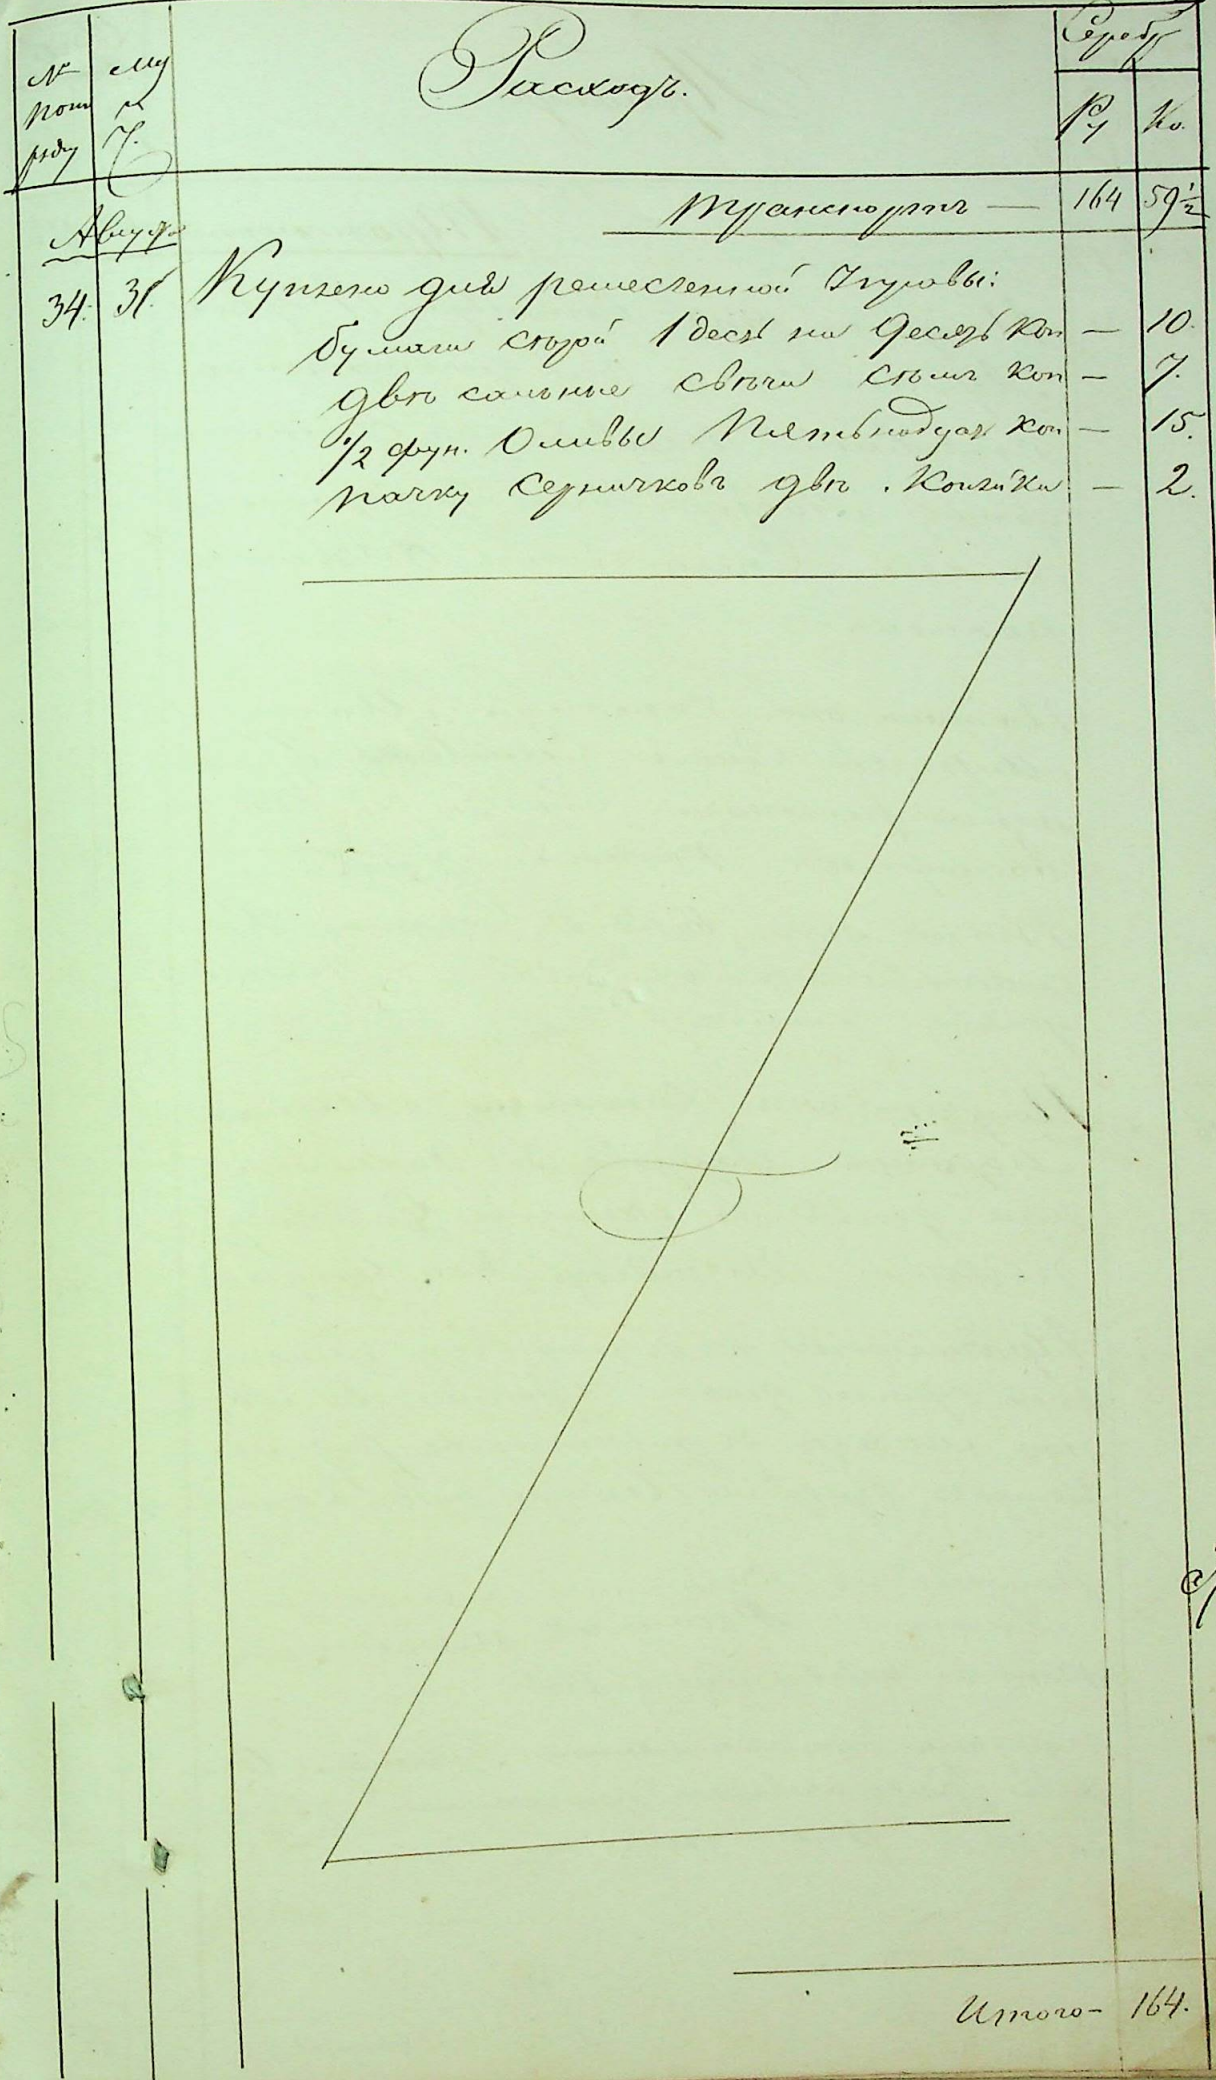 Расходъ.
Серебр
№ пом ряду
Мц и Ч.
Ру
Ко.
транспортъ — 164 59 1/2
Августа
34. 31. Куплено для ремесленной Управы:
бумаги сѣрой 1 десть на Десять Коп — 10.
двѣ сальные свѣчи сѣмь Коп — 7.
1/2 фун. Оливы Пятьнадцат Коп — 15.
пачку Серничковъ двѣ Копѣйки — 2.
Итого — 164.